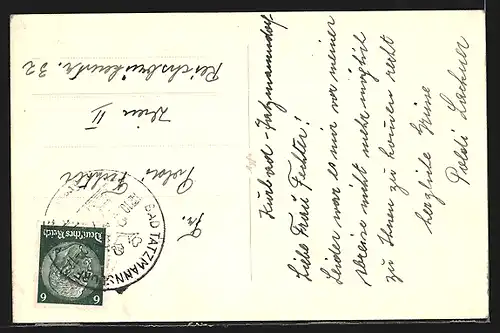 Kurbad-Tatzmannsdorf
Liebe Frau Fechter!
Leider war es mir vor meiner
Abreise nicht mehr möglich
zu Ihnen zu kommen recht
herzliche Grüße
Poldi Lachner
Fr.
Poldi Fechter
Wien II
Reichsbrückenstr. 32
BAD TATZMANNSDORF
Deutsches Reich
6 6